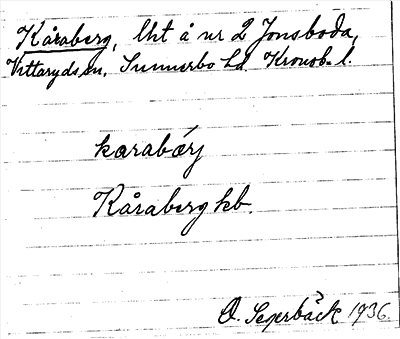 Kåraberg, lht å nr 2 Jonsboda,
Vittaryds sn, Sunnerbo hd Kronob. l.
karabærj
Kåraberg kb.
O. Segerbäck 1936.